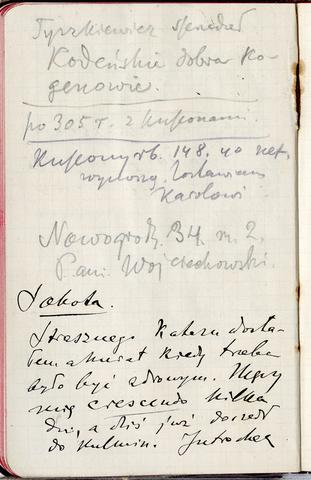 Tyszkiewicz sprzedał
Kodeńskie dobra Ko-
genowie.
po 305 r. z kuponami.
Kupony rb. 148.40 net.
wynoszą. Zostawiam
Karolowi
Nowogrodz. 34 m. 2.
Pani Wojciechowski.
Sobota.
Strasznego kataru dosta-
łem akurat kiedy trzeba
było być zdrowym. Męczy
mię crescendo kilka
dni, a dziś już doszedł
do kulmin. Jutro chcą